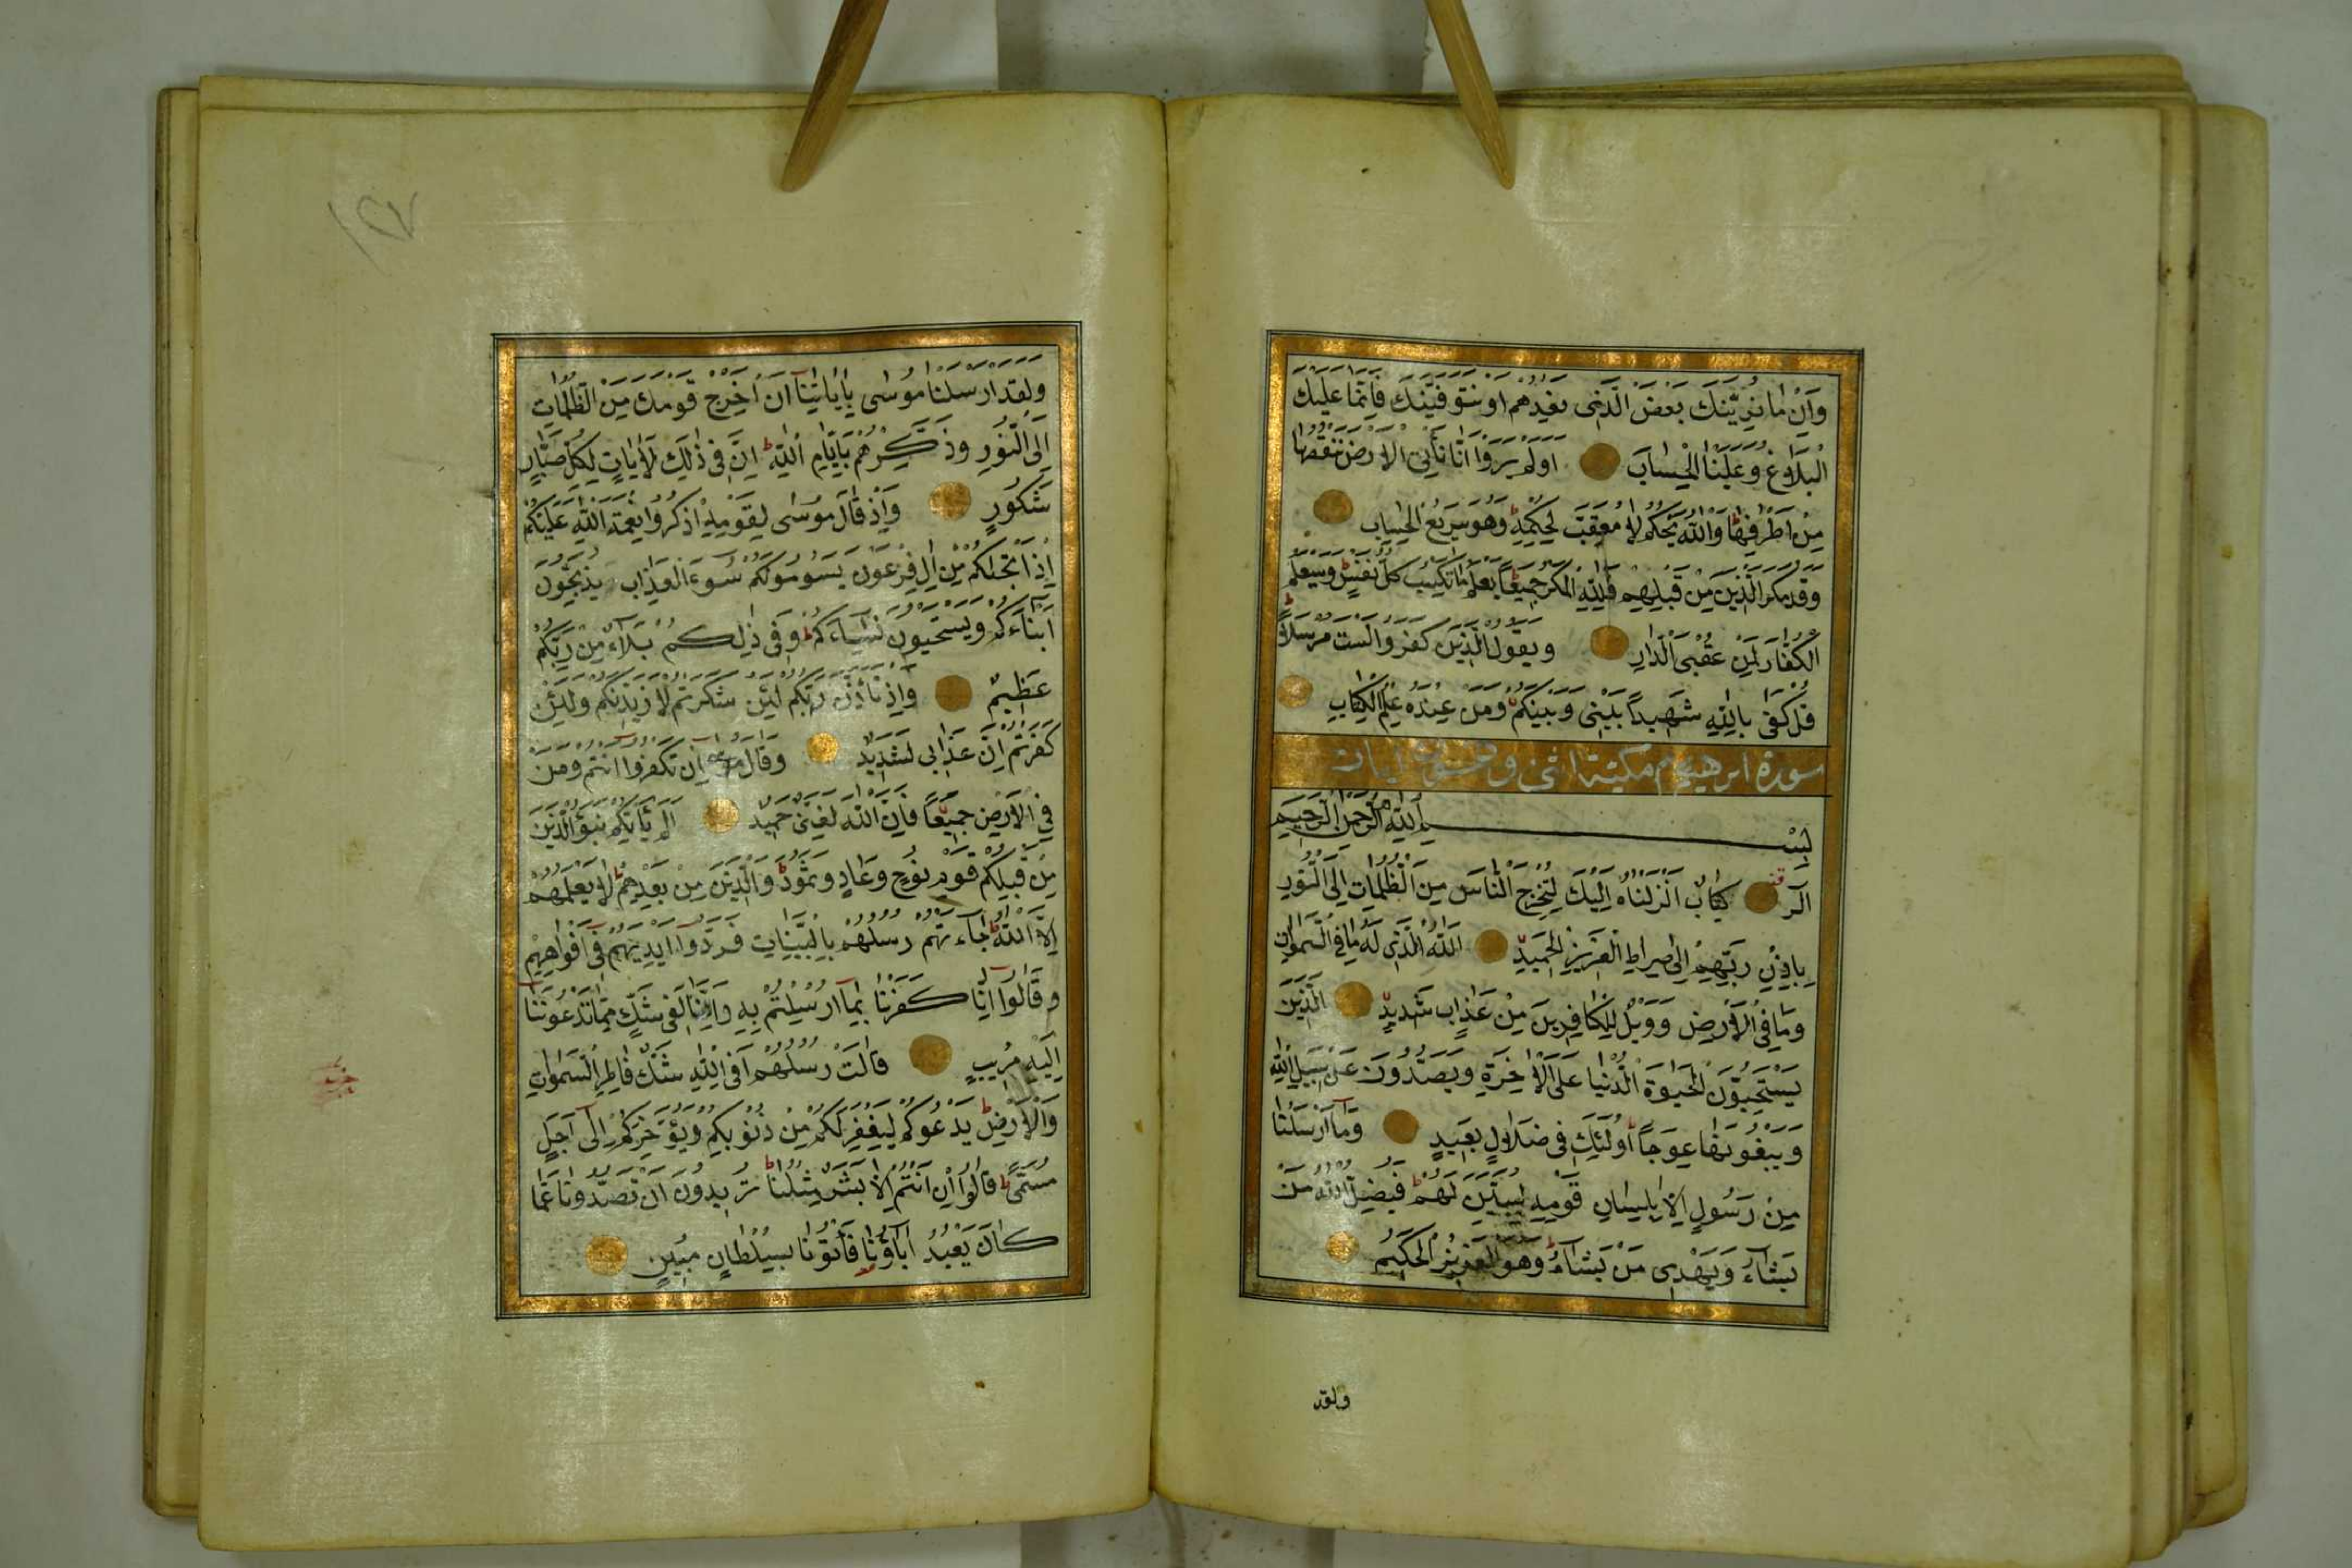 وَاِنْ مَا نُرِيَنَّكَ بَعْضَ الَّذِى نَعِدُهُمْ اَوْ نَتَوَفَّيَنَّكَ فَاِنَّمَا عَلَيْكَ
الْبَلَاغُ وَعَلَيْنَا الْحِسَابُ اَوَلَمْ يَرَوْا اَنَّا نَأْتِى الْاَرْضَ نَنْقُصُهَا
مِنْ اَطْرَافِهَا وَاللّٰهُ يَحْكُمُ لَا مُعَقِّبَ لِحُكْمِهِ وَهُوَ سَرِيعُ الْحِسَابِ
وَقَدْ مَكَرَ الَّذِينَ مِنْ قَبْلِهِمْ فَلِلّٰهِ الْمَكْرُ جَمِيعًا يَعْلَمُ مَا تَكْسِبُ كُلُّ نَفْسٍ وَسَيَعْلَمُ
الْكُفَّارُ لِمَنْ عُقْبَى الدَّارِ وَيَقُولُ الَّذِينَ كَفَرُوا لَسْتَ مُرْسَلًا
قُلْ كَفٰى بِاللّٰهِ شَهِيدًا بَيْنِى وَبَيْنَكُمْ وَمَنْ عِنْدَهُ عِلْمُ الْكِتَابِ
سورة ابرهيم مكية اثنى وخمسون ايات
بِسْمِ اللّٰهِ الرَّحْمٰنِ الرَّحِيمِ
الٓرٰ كِتَابٌ اَنْزَلْنَاهُ اِلَيْكَ لِتُخْرِجَ النَّاسَ مِنَ الظُّلُمَاتِ اِلَى النُّورِ
بِاِذْنِ رَبِّهِمْ اِلٰى صِرَاطِ الْعَزِيزِ الْحَمِيدِ اَللّٰهُ الَّذِى لَهُ مَا فِى السَّمٰوَاتِ
وَمَا فِى الْاَرْضِ وَوَيْلٌ لِلْكَافِرِينَ مِنْ عَذَابٍ شَدِيدٍ الَّذِينَ
يَسْتَحِبُّونَ الْحَيٰوةَ الدُّنْيَا عَلَى الْاٰخِرَةِ وَيَصُدُّونَ عَنْ سَبِيلِ اللّٰهِ
وَيَبْغُونَهَا عِوَجًا اُولٰئِكَ فِى ضَلَالٍ بَعِيدٍ وَمَا اَرْسَلْنَا
مِنْ رَسُولٍ اِلَّا بِلِسَانِ قَوْمِهِ لِيُبَيِّنَ لَهُمْ فَيُضِلُّ اللّٰهُ مَنْ
يَشَاءُ وَيَهْدِى مَنْ يَشَاءُ وَهُوَ الْعَزِيزُ الْحَكِيمُ
ولقد
وَلَقَدْ اَرْسَلْنَا مُوسٰى بِاٰيَاتِنَا اَنْ اَخْرِجْ قَوْمَكَ مِنَ الظُّلُمَاتِ
اِلَى النُّورِ وَذَكِّرْهُمْ بِاَيَّامِ اللّٰهِ اِنَّ فِى ذٰلِكَ لَاٰيَاتٍ لِكُلِّ صَبَّارٍ
شَكُورٍ وَاِذْ قَالَ مُوسٰى لِقَوْمِهِ اذْكُرُوا نِعْمَةَ اللّٰهِ عَلَيْكُمْ
اِذْ اَنْجٰيكُمْ مِنْ اٰلِ فِرْعَوْنَ يَسُومُونَكُمْ سُوءَ الْعَذَابِ يُذَبِّحُونَ
اَبْنَاءَكُمْ وَيَسْتَحْيُونَ نِسَاءَكُمْ وَفِى ذٰلِكُمْ بَلَاءٌ مِنْ رَبِّكُمْ
عَظِيمٌ وَاِذْ تَأَذَّنَ رَبُّكُمْ لَئِنْ شَكَرْتُمْ لَاَزِيدَنَّكُمْ وَلَئِنْ
كَفَرْتُمْ اِنَّ عَذَابِى لَشَدِيدٌ وَقَالَ مُوسٰى اِنْ تَكْفُرُوا اَنْتُمْ وَمَنْ
فِى الْاَرْضِ جَمِيعًا فَاِنَّ اللّٰهَ لَغَنِىٌّ حَمِيدٌ اَلَمْ يَأْتِكُمْ نَبَؤُا الَّذِينَ
مِنْ قَبْلِكُمْ قَوْمِ نُوحٍ وَعَادٍ وَثَمُودَ وَالَّذِينَ مِنْ بَعْدِهِمْ لَا يَعْلَمُهُمْ
اِلَّا اللّٰهُ جَاءَتْهُمْ رُسُلُهُمْ بِالْبَيِّنَاتِ فَرَدُّوا اَيْدِيَهُمْ فِى اَفْوَاهِهِمْ
وَقَالُوا اِنَّا كَفَرْنَا بِمَا اُرْسِلْتُمْ بِهِ وَاِنَّا لَفِى شَكٍّ مِمَّا تَدْعُونَنَا
اِلَيْهِ مُرِيبٍ قَالَتْ رُسُلُهُمْ اَفِى اللّٰهِ شَكٌّ فَاطِرِ السَّمٰوَاتِ
وَالْاَرْضِ يَدْعُوكُمْ لِيَغْفِرَ لَكُمْ مِنْ ذُنُوبِكُمْ وَيُؤَخِّرَكُمْ اِلٰى اَجَلٍ
مُسَمًّى قَالُوا اِنْ اَنْتُمْ اِلَّا بَشَرٌ مِثْلُنَا تُرِيدُونَ اَنْ تَصُدُّونَا عَمَّا
كَانَ يَعْبُدُ اٰبَاؤُنَا فَأْتُونَا بِسُلْطَانٍ مُبِينٍ